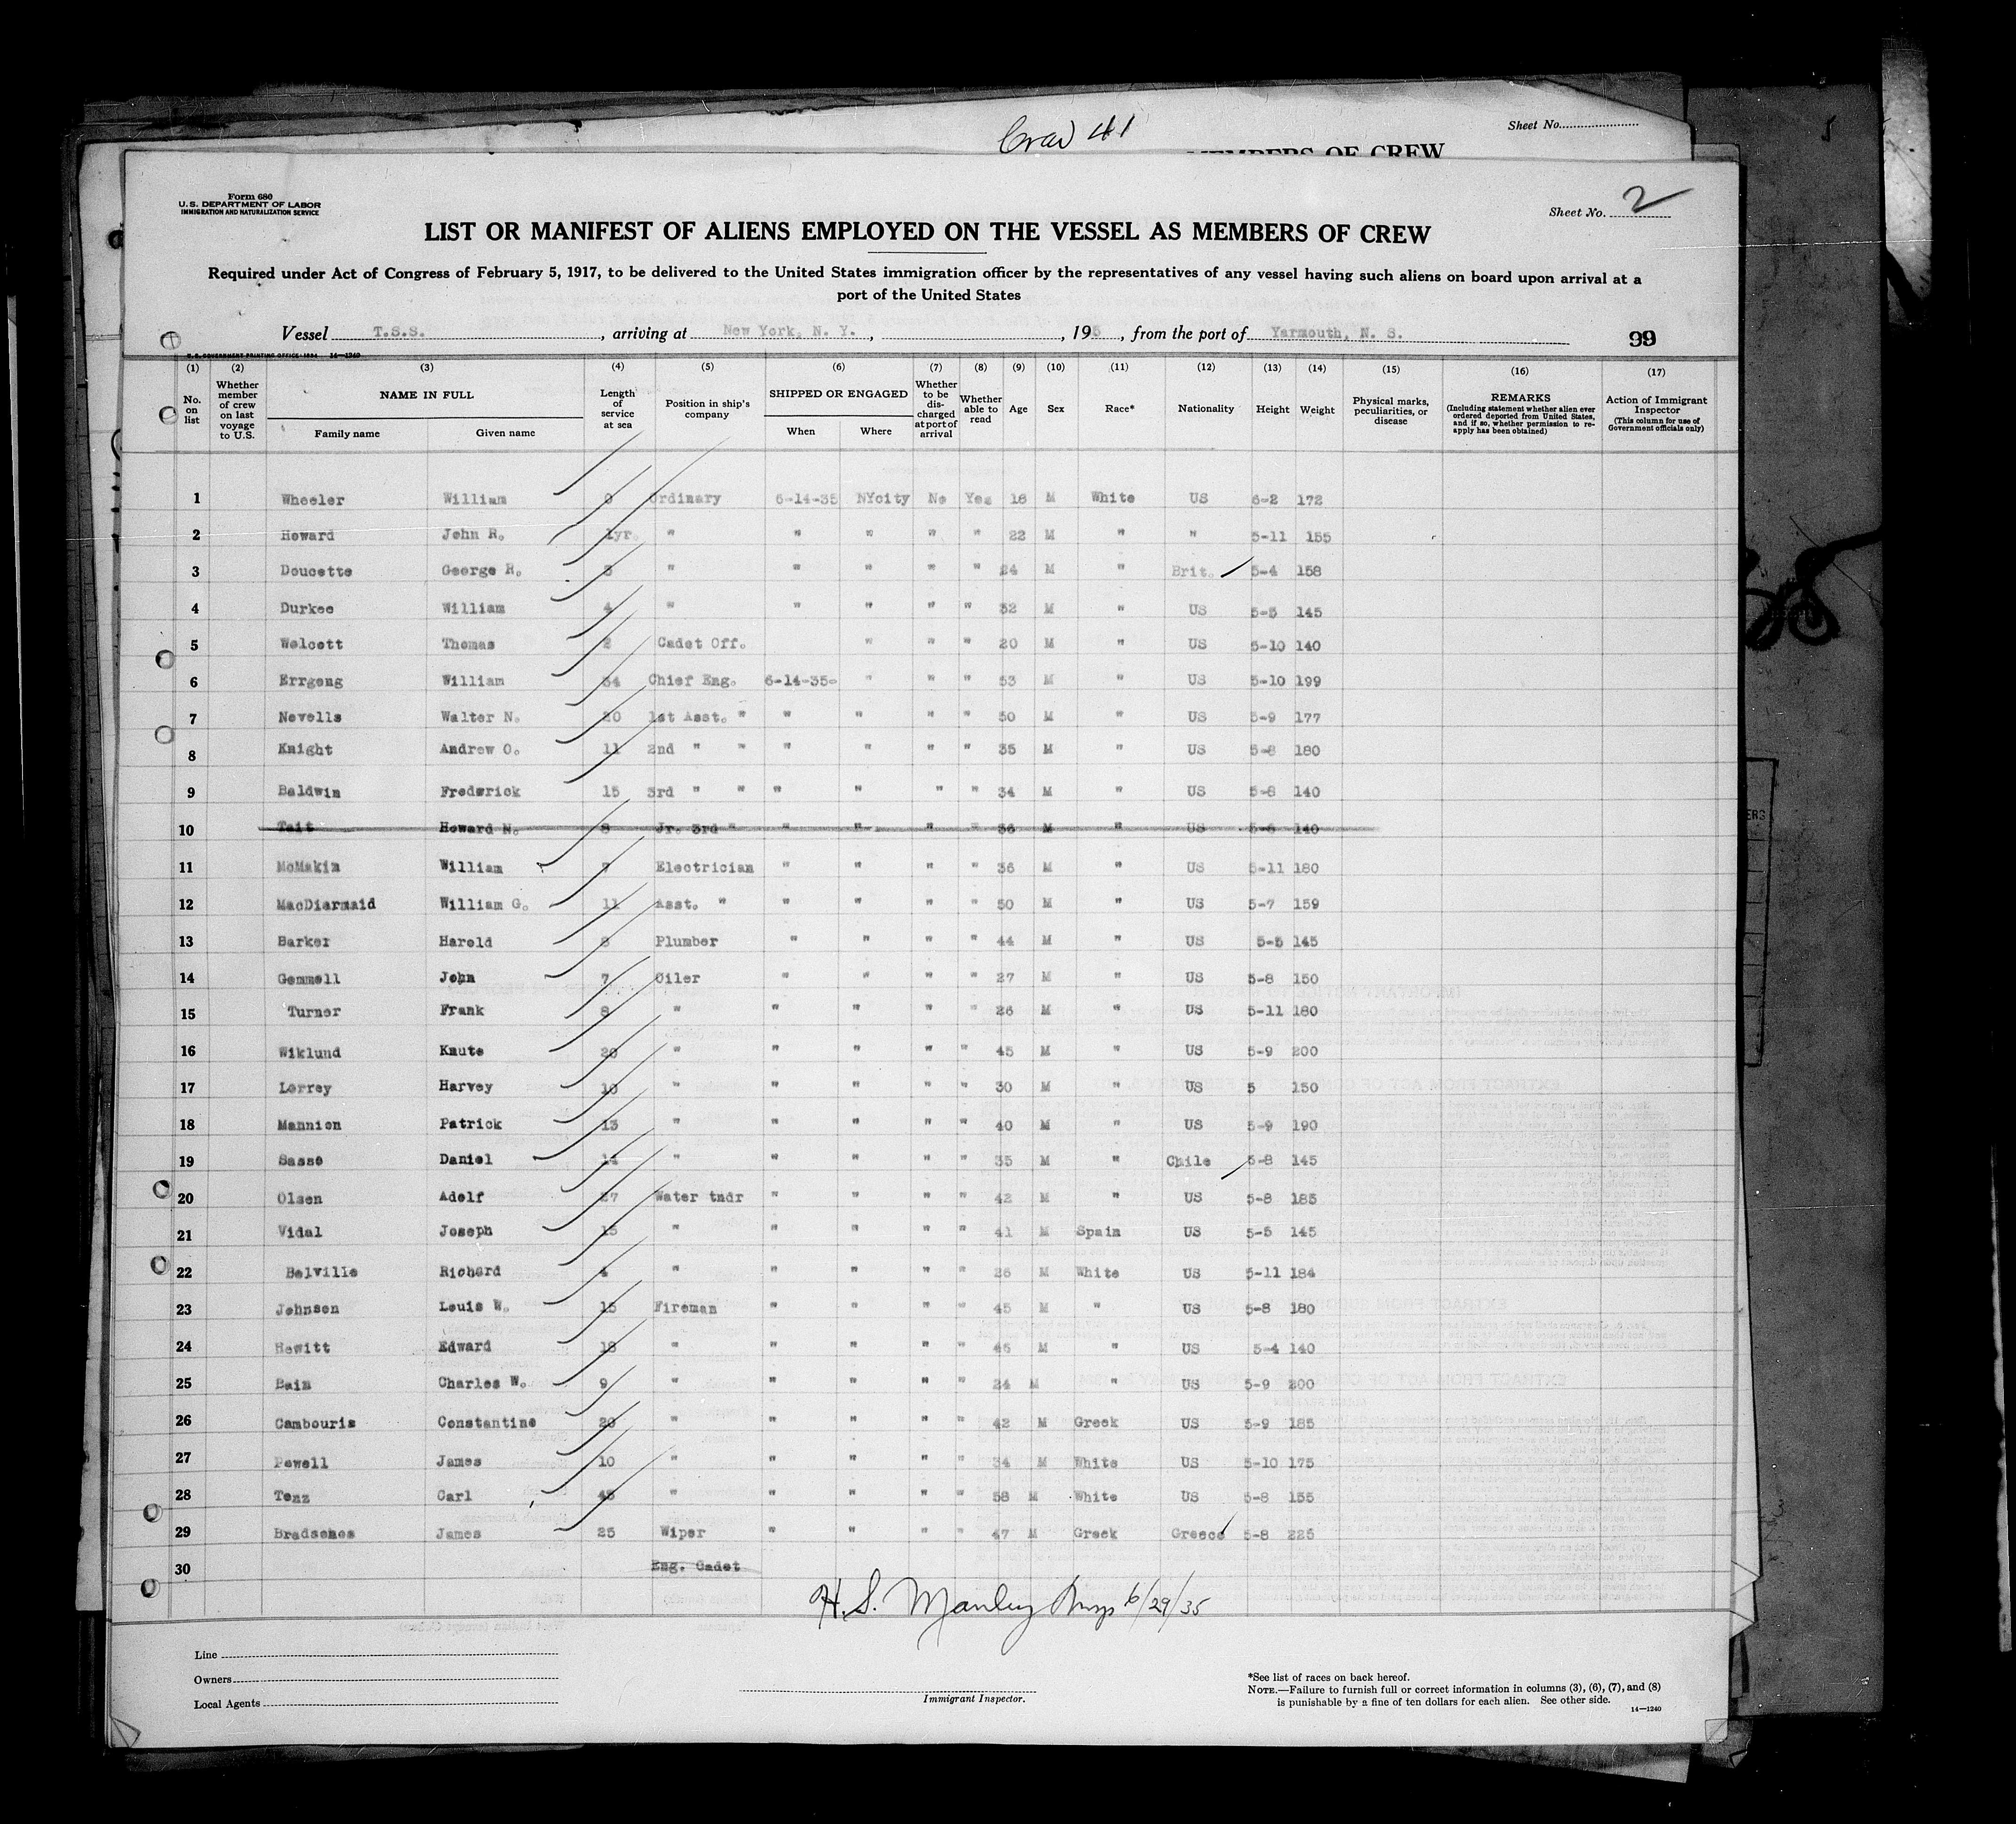 Crew 41
Sheet No.
MEMBERS OF CREW
Form 680
U.S. DEPARTMENT OF LABOR
IMMIGRATION AND NATURALIZATION SERVICE
Sheet No. 2
LIST OR MANIFEST OF ALIENS EMPLOYED ON THE VESSEL AS MEMBERS OF CREW
Required under Act of Congress of February 5, 1917, to be delivered to the United States immigration officer by the representatives of any vessel having such aliens on board upon arrival at a
port of the United States
Vessel T.S.S. , arriving at New York, N. Y. , , 195 , from the port of Yarmouth, N. S. 99
U.S. GOVERNMENT PRINTING OFFICE: 1934 14—1240
(1) (2) (3) (4) (5) (6) (7) (8) (9) (10) (11) (12) (13) (14) (15) (16) (17)
No. on list
Whether member of crew on last voyage to U.S.
NAME IN FULL
Family name Given name
Length of service at sea
Position in ship's company
SHIPPED OR ENGAGED
When Where
Whether to be discharged at port of arrival
Whether able to read
Age
Sex
Race*
Nationality
Height
Weight
Physical marks, peculiarities, or disease
REMARKS
(Including statement whether alien ever ordered deported from United States, and if so, whether permission to re-apply has been obtained)
Action of Immigrant Inspector
(This column for use of Government officials only)
1 Wheeler William 0 Ordinary 6-14-35 NYcity No Yes 18 M White US 6-2 172
2 Howard John R. 1yr. " " " " " 22 M " " 5-11 155
3 Doucette George R. 3 " " " " " 24 M " Brit. 5-4 158
4 Durkee William 4 " " " " " 32 M " US 5-5 145
5 Wolcott Thomas 2 Cadet Off. " " " 20 M " US 5-10 140
6 Errgong William 34 Chief Eng. 6-14-35- " " " 53 M " US 5-10 199
7 Nevells Walter N. 20 1st Asst. " " " " " 50 M " US 5-9 177
8 Knight Andrew O. 11 2nd " " " " " " 35 M " US 5-8 180
9 Baldwin Frederick 15 3rd " " " " " " 34 M " US 5-8 140
10 Tait Howard N. 8 Jr. 3rd " " " " " 36 M " US 5-8 140
11 McMakin William 7 Electrician " " " " 36 M " US 5-11 180
12 MacDiarmaid William G. 11 Asst. " " " " " 50 M " US 5-7 159
13 Barker Harold 8 Plumber " " " " 44 M " US 5-5 145
14 Gemmell John 7 Oiler " " " " 27 M " US 5-8 150
15 Turner Frank 8 " " " " " 26 M " US 5-11 180
16 Wiklund Knute 20 " " " " " 45 M " US 5-9 200
17 Lorrey Harvey 10 " " " " " 30 M " US 5 150
18 Mannion Patrick 13 " " " " " 40 M " US 5-9 190
19 Sasso Daniel 14 " " " " " 35 M " Chile 5-8 145
20 Olsen Adolf 27 Water tndr " " " " 42 M " US 5-8 185
21 Vidal Joseph 15 " " " " " 41 M Spain US 5-5 145
22 Belville Richard 4 " " " " " 26 M White US 5-11 184
23 Johnson Louis W. 15 Fireman " " " " 45 M " US 5-8 180
24 Hewitt Edward 18 " " " " " 45 M " US 5-4 140
25 Bain Charles W. 9 " " " " " 24 M " US 5-9 200
26 Cambouris Constantine 20 " " " " " 42 M Greek US 5-9 185
27 Powell James 10 " " " " " 34 M White US 5-10 175
28 Tenz Carl 45 " " " " " 58 M White US 5-8 155
29 Bradsches James 25 Wiper " " " " 47 M Greek Greece 5-8 225
30 Eng. Cadet
H. S. Manley Insp 6/29/35
Line
Owners
Local Agents
Immigrant Inspector.
*See list of races on back hereof.
NOTE.—Failure to furnish full or correct information in columns (3), (6), (7), and (8)
is punishable by a fine of ten dollars for each alien. See other side.
14—1240